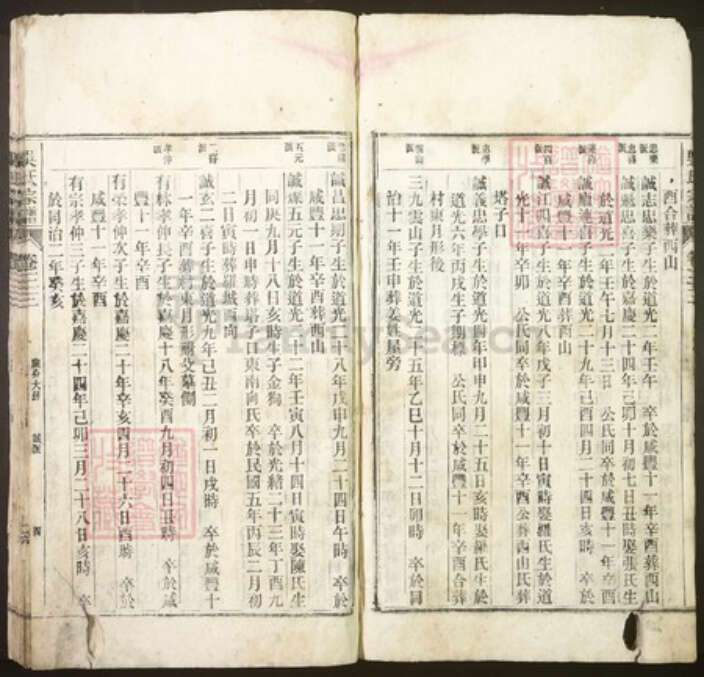 酉合葬西山
忠樂派
誠志忠樂子生於道光二年壬午 卒於咸豐十一年辛酉葬西山
忠喜派
誠魁忠喜子生於嘉慶二十四年己卯十月初七日丑時娶張氏生
於道光二年壬午七月十三日 公民同卒於咸豐十一年辛酉
連喜派
誠順連喜子生於道光二十九年己酉四月二十四日亥時 卒於
咸豐十一年辛酉葬西山
四喜派
誠江四喜子生於道光八年戊子三月初十日寅時娶羅氏生於道
光十一年辛卯 公民同卒於咸豐十一年辛酉公葬西山氏葬
塔子口
忠學派
誠義忠學子生於道光四年甲申九月二十五日亥時娶羅氏生於
道光六年丙戌生子 公民同卒於咸豐十一年辛酉合葬
村東月形後
三九雲山子生於道光二十五年乙巳十月十二日卯時 卒於同
治十一年壬申葬姜姓屋旁
吳氏宗譜
誠昌忠 子生於道光二十八年戊申九月二十四日午時 卒於
咸豐十一年辛酉葬西山
五元派
誠 五元子生於道光二十二年壬寅八月十四日寅時娶陳氏生
同庚九月十八日亥時生子金狗 公卒於光緒二十三年丁酉九
月初一日申時葬塔子口東南向氏卒於民國五年丙辰二月初
二日寅時葬羅城西向
二喜派
誠玄二喜子生於道光九年己丑二月初一日戌時 卒於咸豐十
一年辛酉葬村東月形祖父墓側
孝仲派
有林孝仲長子生於嘉慶十八年癸酉九月初四日丑時 卒於咸
豐十一年辛酉
有榮孝仲次子生於嘉慶二十年 亥四月二十六日酉時 卒於
咸豐十一年辛酉
有宗孝仲三子生於嘉慶二十四年己卯三月二十八日亥時 卒
於同治二年癸亥
FamilySearch